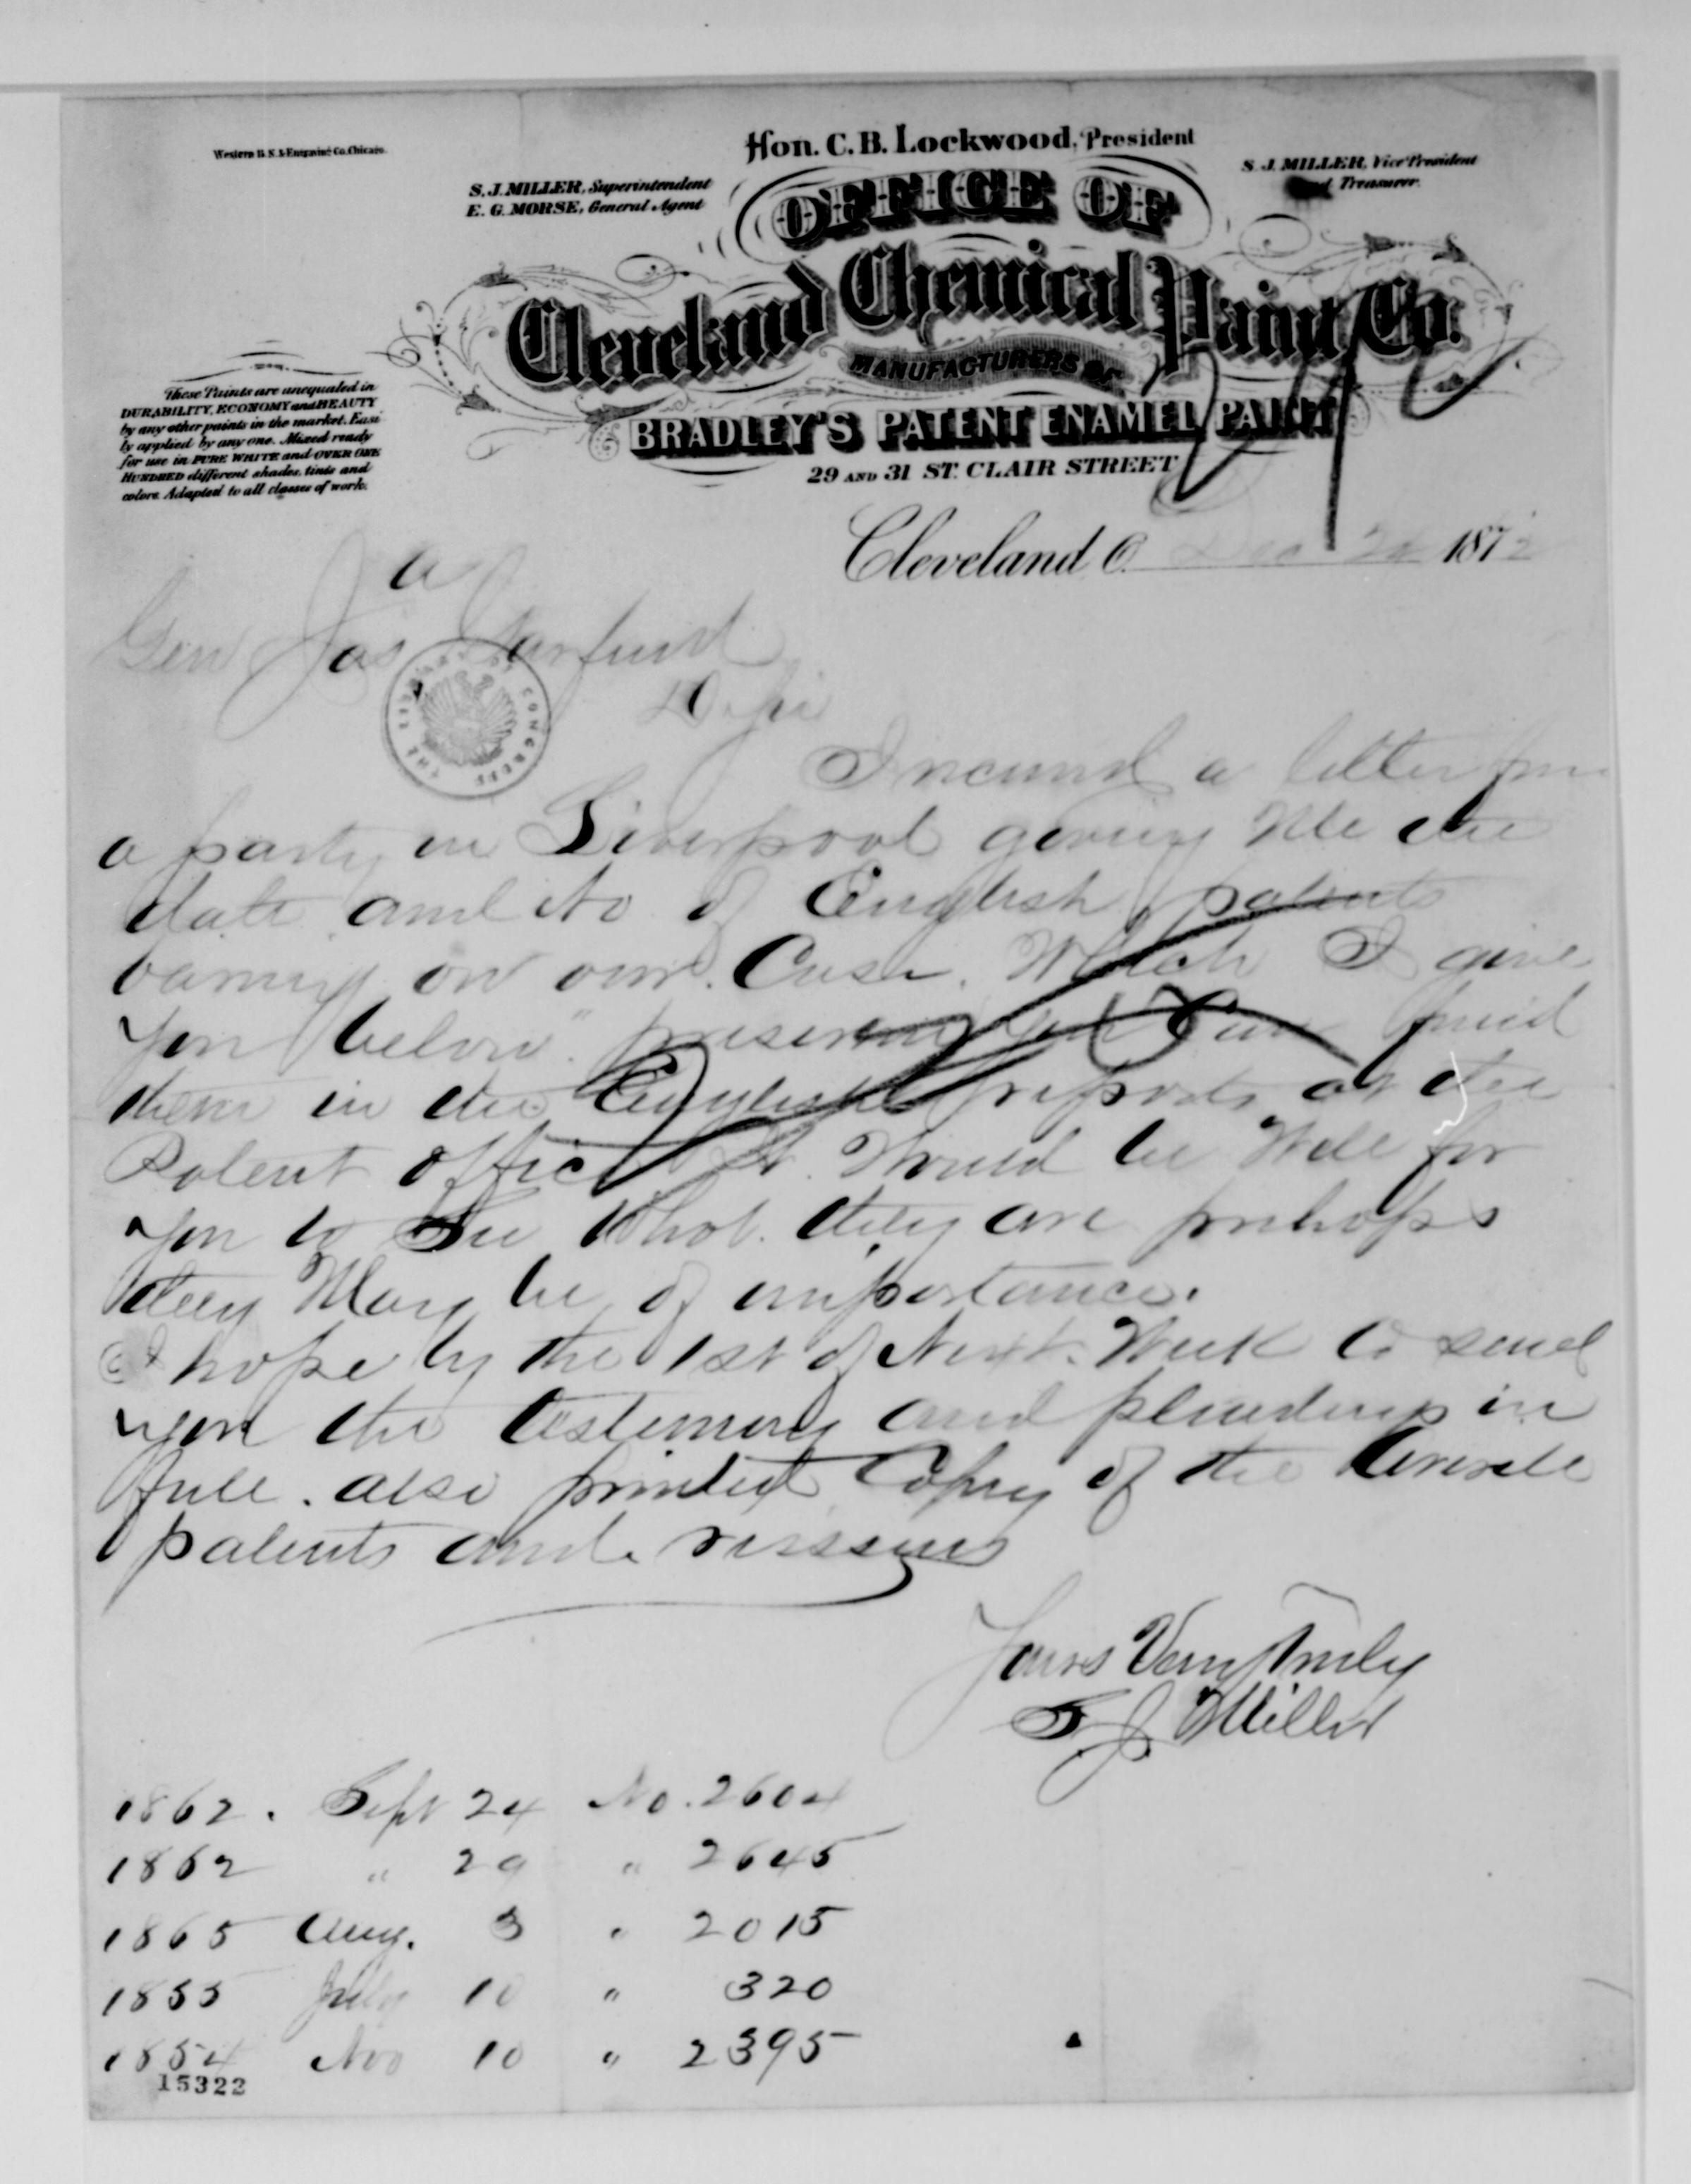 Western B.N.& Engraving Co. Chicago.
Hon. C. B. Lockwood, President
S. J. MILLER, Superintendent
E. G. MORSE, General Agent
S. J. MILLER, Vice President
Treasurer.
OFFICE OF
Cleveland Chemical Paint Co.
MANUFACTURERS OF
BRADLEY'S PATENT ENAMEL PAINT
29 AND 31 ST. CLAIR STREET
These Paints are unequaled in
DURABILITY, ECONOMY and BEAUTY
by any other paints in the market. Easi
ly applied by any one. Mixed ready
for use in PURE WHITE and OVER ONE
HUNDRED different shades, tints and
colors. Adapted to all classes of work.
Cleveland O. Dec 24 1872
Gen Jas a Garfield
THE LIBRARY OF CONGRESS
D. Sir
I received a letter from
a party in Liverpool giving Me the
date and No of English patents
baring on our Case. Which I give
you below. presume you can find
them in the English reports at the
Patent office It Would be Well for
you to See What they are perhaps
they May be of importance.
I hope by the 1st of Next Week to send
you the testimony and pleadings in
full. also printed Copy of the Averill
patents and reissues
Yours Very Truly
S J Miller
1862. Sept 24 No. 2604
1862 " 29 " 2645
1865 Aug. 3 " 2015
1855 July 10 " 320
1854 Nov 10 " 2395
15322